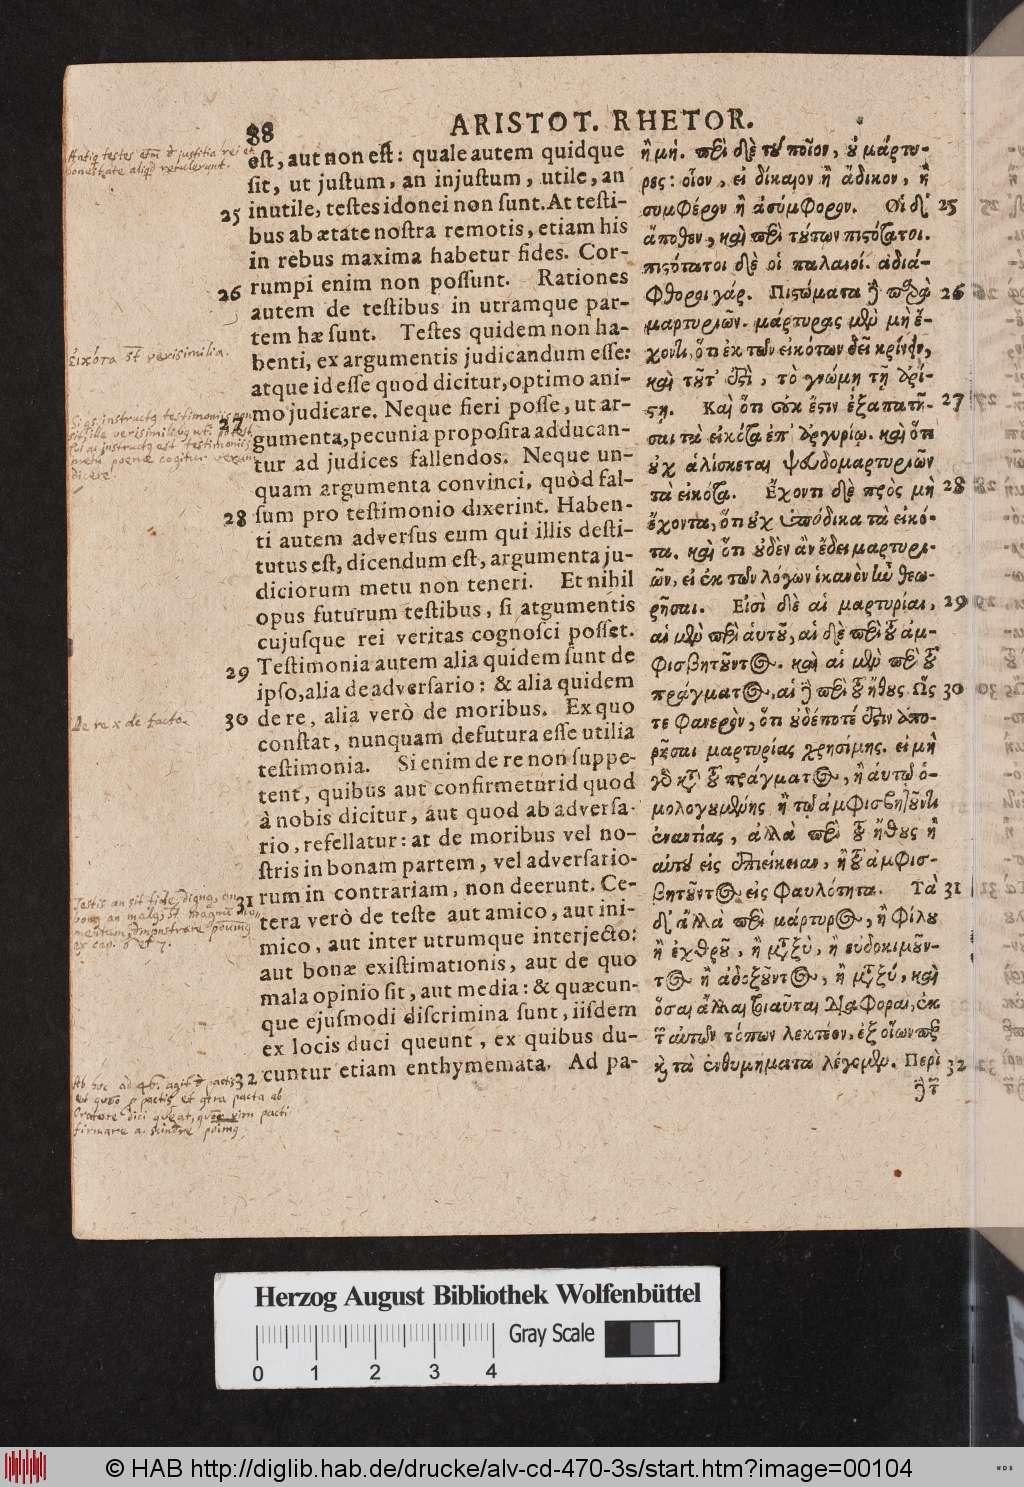 88
ARISTOT. RHETOR.
est, aut non est: quale autem quidque
sit, ut justum, an injustum, utile, an
25 inutile, testes idonei non sunt. At testi-
bus ab ætate nostra remotis, etiam his
in rebus maxima habetur fides. Cor-
26 rumpi enim non possunt. Rationes
autem de testibus in utramque par-
tem hæ sunt. Testes quidem non ha-
benti, ex argumentis judicandum esse:
atque id esse quod dicitur, optimo ani-
27 mo judicare. Neque fieri posse, ut ar-
gumenta, pecunia proposita adducan-
tur ad judices fallendos. Neque un-
quam argumenta convinci, quòd fal-
28 sum pro testimonio dixerint. Haben-
ti autem adversus eum qui illis desti-
tutus est, dicendum est, argumenta ju-
diciorum metu non teneri. Et nihil
opus futurum testibus, si atgumentis
cujusque rei veritas cognosci posset.
29 Testimonia autem alia quidem sunt de
ipso, alia de adversario: & alia quidem
30 de re, alia verò de moribus. Ex quo
constat, nunquam defutura esse utilia
testimonia. Si enim de re non suppe-
tent, quibus aut confirmetur id quod
à nobis dicitur, aut quod ab adversa-
rio, refellatur: at de moribus vel no-
stris in bonam partem, vel adversario-
31 rum in contrariam, non deerunt. Ce-
tera verò de teste aut amico, aut ini-
mico, aut inter utrumque interjecto:
aut bonæ existimationis, aut de quo
mala opinio sit, aut media: & quæcun-
que ejusmodi discrimina sunt, iisdem
ex locis duci queunt, ex quibus du-
32 cuntur etiam enthymemata. Ad pa-
ἢ μή. περὶ δὲ τοῦ ποῖον, οὐ μάρτυ-
ρες: οἷον, εἰ δίκαιον ἢ ἄδικον, ἢ
συμφέρον ἢ ἀσύμφορον. Οἱ δ' 25
ἄποθεν, καὶ περὶ τούτων πιστότατοι.
πιστότατοι δὲ οἱ παλαιοί. ἀδιά-
φθοροι γάρ. Πιστώματα δὲ περὶ 26
μαρτυριῶν. μάρτυρας μὲν μὴ ἔ-
χοντι, ὅτι ἐκ τῶν εἰκότων δεῖ κρίνειν,
καὶ τοῦτ' ἐστὶ, τὸ γνώμῃ τῇ ἀρί-
στῃ. Καὶ ὅτι οὐκ ἔστιν ἐξαπατῆ- 27
σαι τὰ εἰκότα ἐπ' ἀργυρίῳ. καὶ ὅτι
οὐχ ἁλίσκεται ψευδομαρτυριῶν
τὰ εἰκότα. Ἔχοντι δὲ πρὸς μὴ 28
ἔχοντα, ὅτι οὐχ ὑπόδικα τὰ εἰκό-
τα. καὶ ὅτι οὐδὲν ἂν ἔδει μαρτυρι-
ῶν, εἰ ἐκ τῶν λόγων ἱκανὸν ἦν θεω-
ρῆσαι. Εἰσὶ δὲ αἱ μαρτυρίαι, 29
αἱ μὲν περὶ αὑτοῦ, αἱ δὲ περὶ τοῦ ἀμ-
φισβητοῦντος. καὶ αἱ μὲν περὶ τοῦ
πράγματος, αἱ δὲ περὶ τοῦ ἤθους Ὥς 30
τε φανερὸν, ὅτι οὐδέποτέ ἐστιν ἀπο-
ρῆσαι μαρτυρίας χρησίμης. εἰ μὴ
γὰρ κατὰ τοῦ πράγματος, ἢ αὑτῷ ὁ-
μολογουμένης ἢ τῷ ἀμφισβητοῦντι
ἐναντίας, ἀλλὰ περὶ τοῦ ἤθους ἢ
αὑτοῦ εἰς ἐπιείκειαν, ἢ τοῦ ἀμφισ-
βητοῦντος εἰς φαυλότητα. Τὰ 31
δ' ἄλλα περὶ μάρτυρος, ἢ φίλου
ἢ ἐχθροῦ, ἢ μεταξὺ, ἢ εὐδοκιμοῦν-
τος ἢ ἀδοξοῦντος, ἢ μεταξύ, καὶ
ὅσαι ἄλλαι τοιαῦται διαφοραὶ, ἐκ
τῶν αὐτῶν τόπων λεκτέον, ἐξ οἵων περ
καὶ τὰ ἐνθυμήματα λέγομεν. Περὶ 32
δὲ τῶν
εἰκότα st verisimilia.
De re x de facto
Herzog August Bibliothek Wolfenbüttel
Gray Scale
0 1 2 3 4
© HAB http://diglib.hab.de/drucke/alv-cd-470-3s/start.htm?image=00104